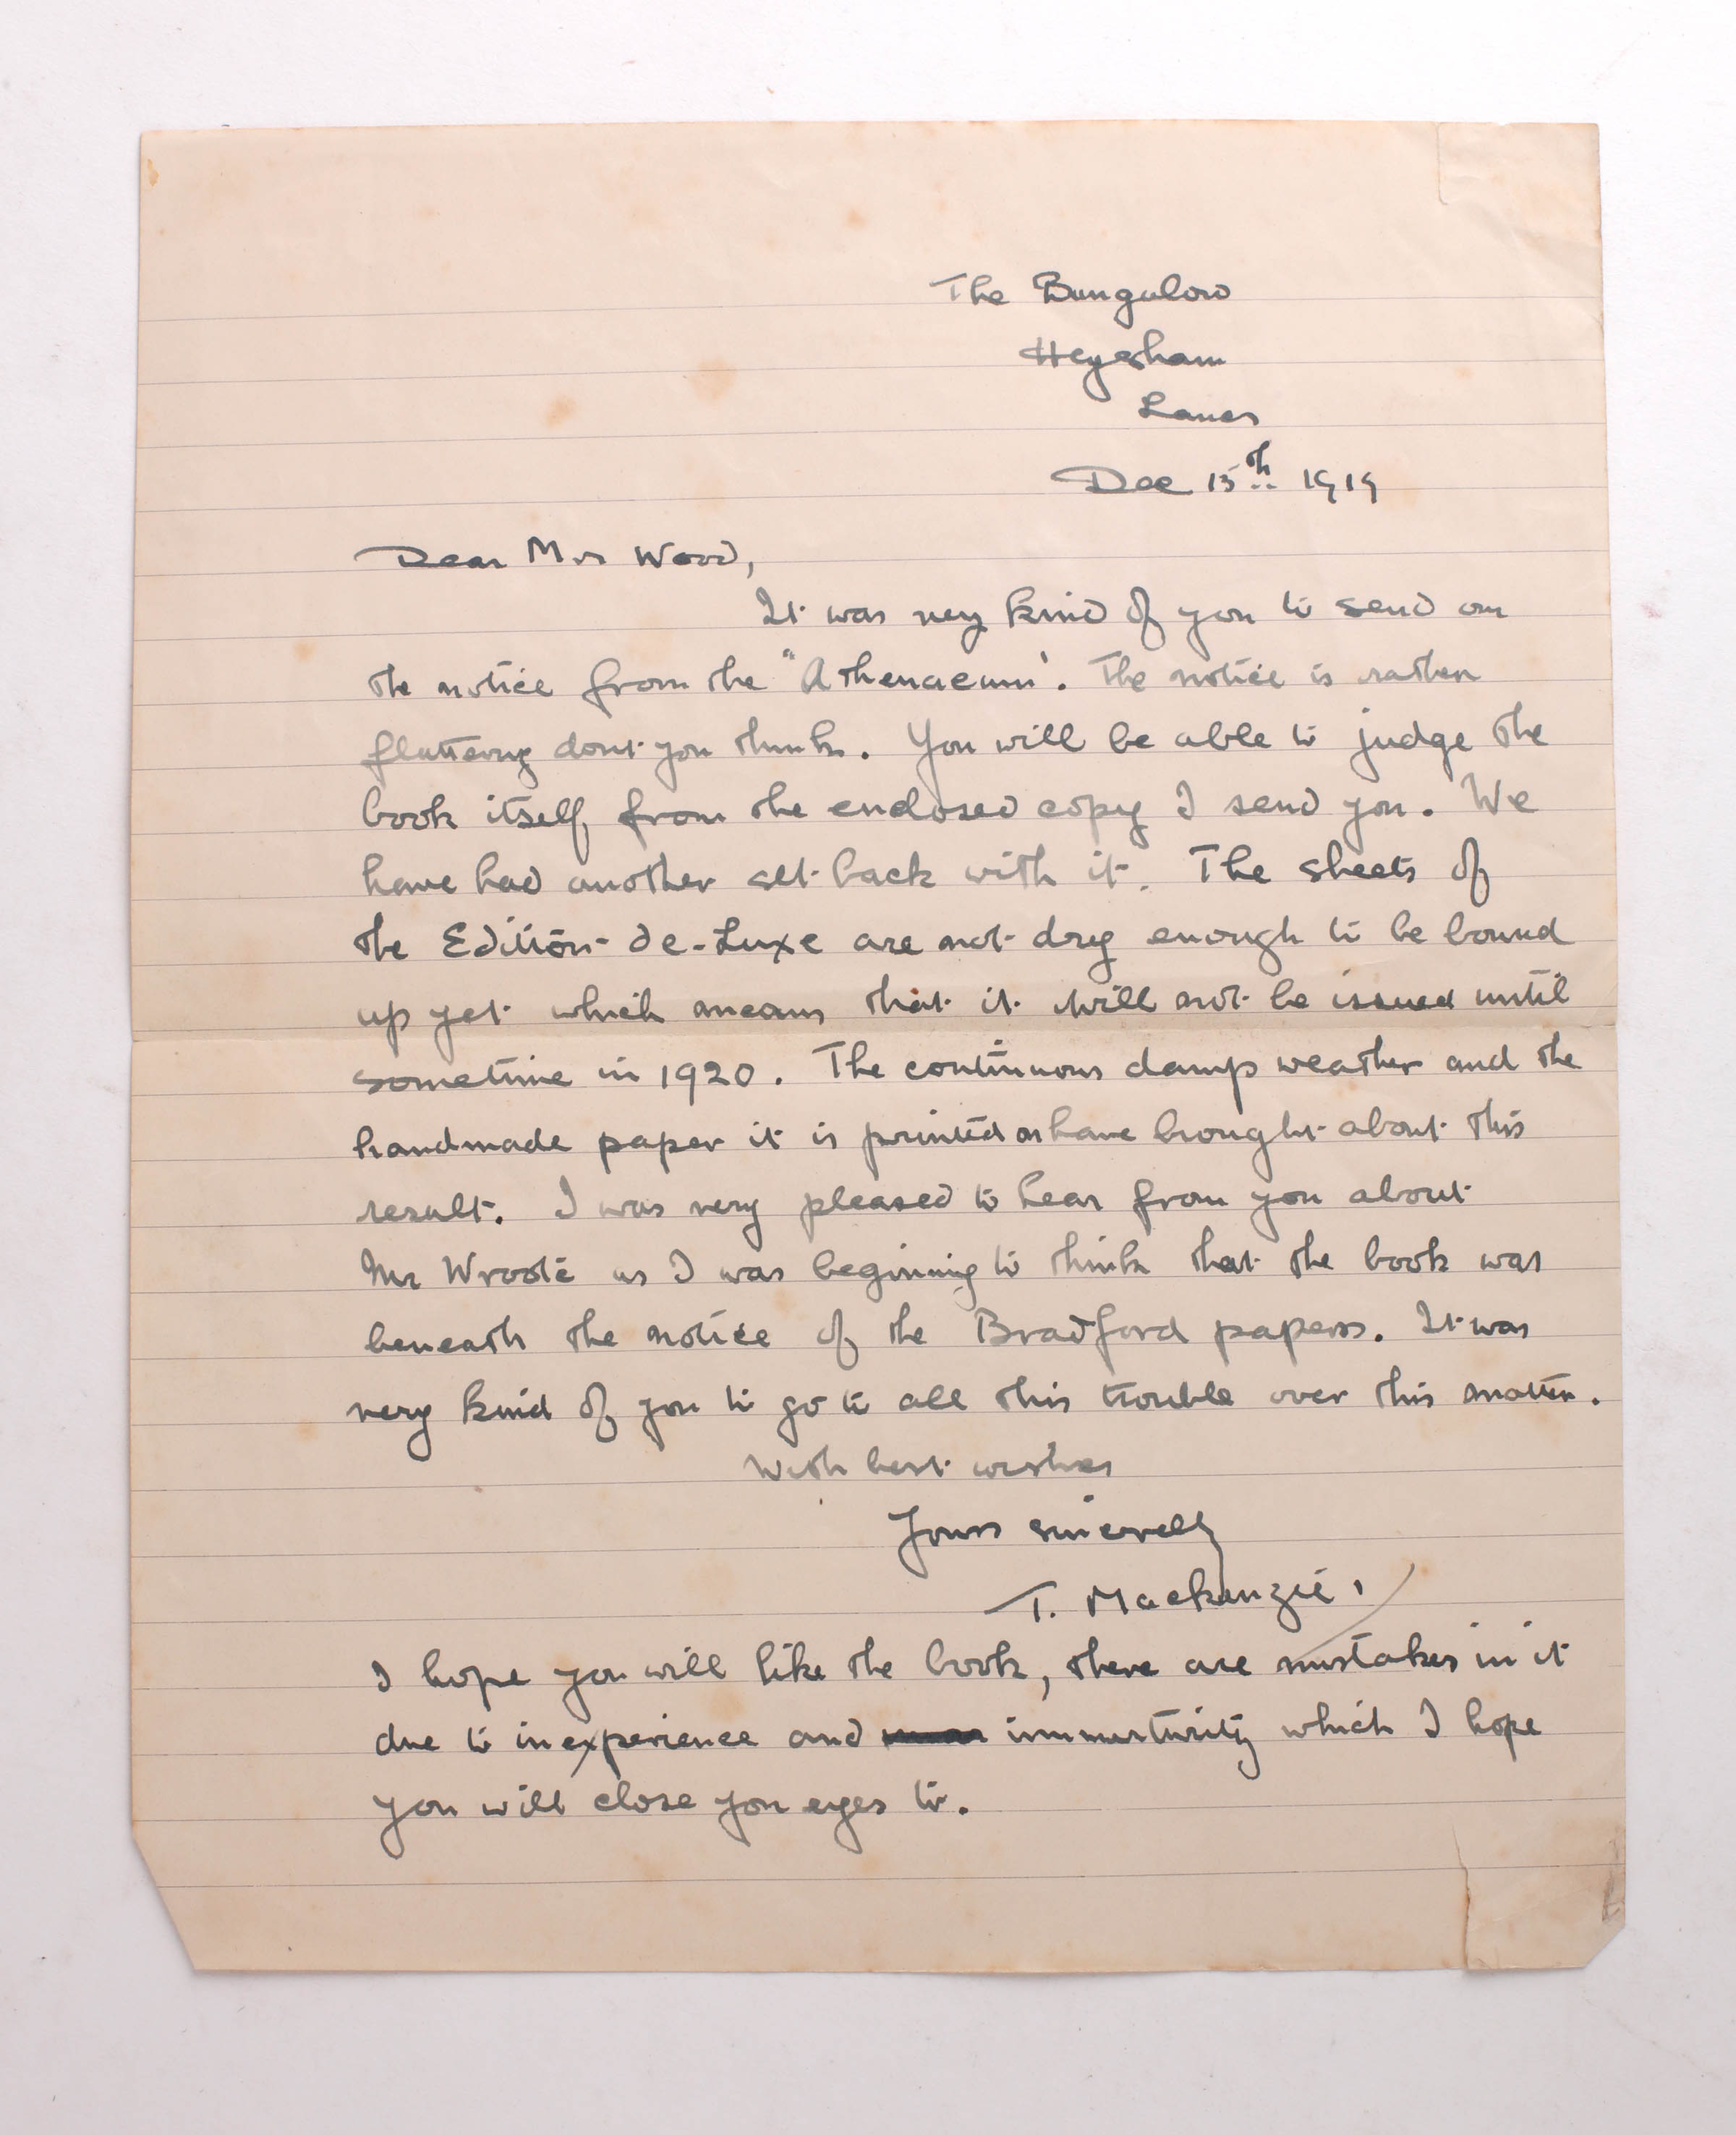 The Bungalow
Heysham
Lancs
Dec 15th 1919
Dear Mrs Wood,
It was very kind of you to send on
the notice from the "Athenaeum'. The notice is rather
flattering dont you think. You will be able to judge the
book itself, from the enclosed copy I send you. We
have had another set back with it. The sheets of
the Edition-de-Luxe are not dry enough to be bound
up yet which means that it will not be issued until
sometime in 1920. The continuous damp weather and the
handmade paper it is printed on have brought about this
result. I was very pleased to hear from you about
Mr Wroote as I was beginning to think that the book was
beneath the notice of the Bradford papers. It was
very kind of you to go to all this trouble over this matter.
With best wishes
Yours sincerely
T. Mackenzie.
I hope you will like the book, there are mistakes in it
due to inexperience and immaturity which I hope
you will close you eyes to.